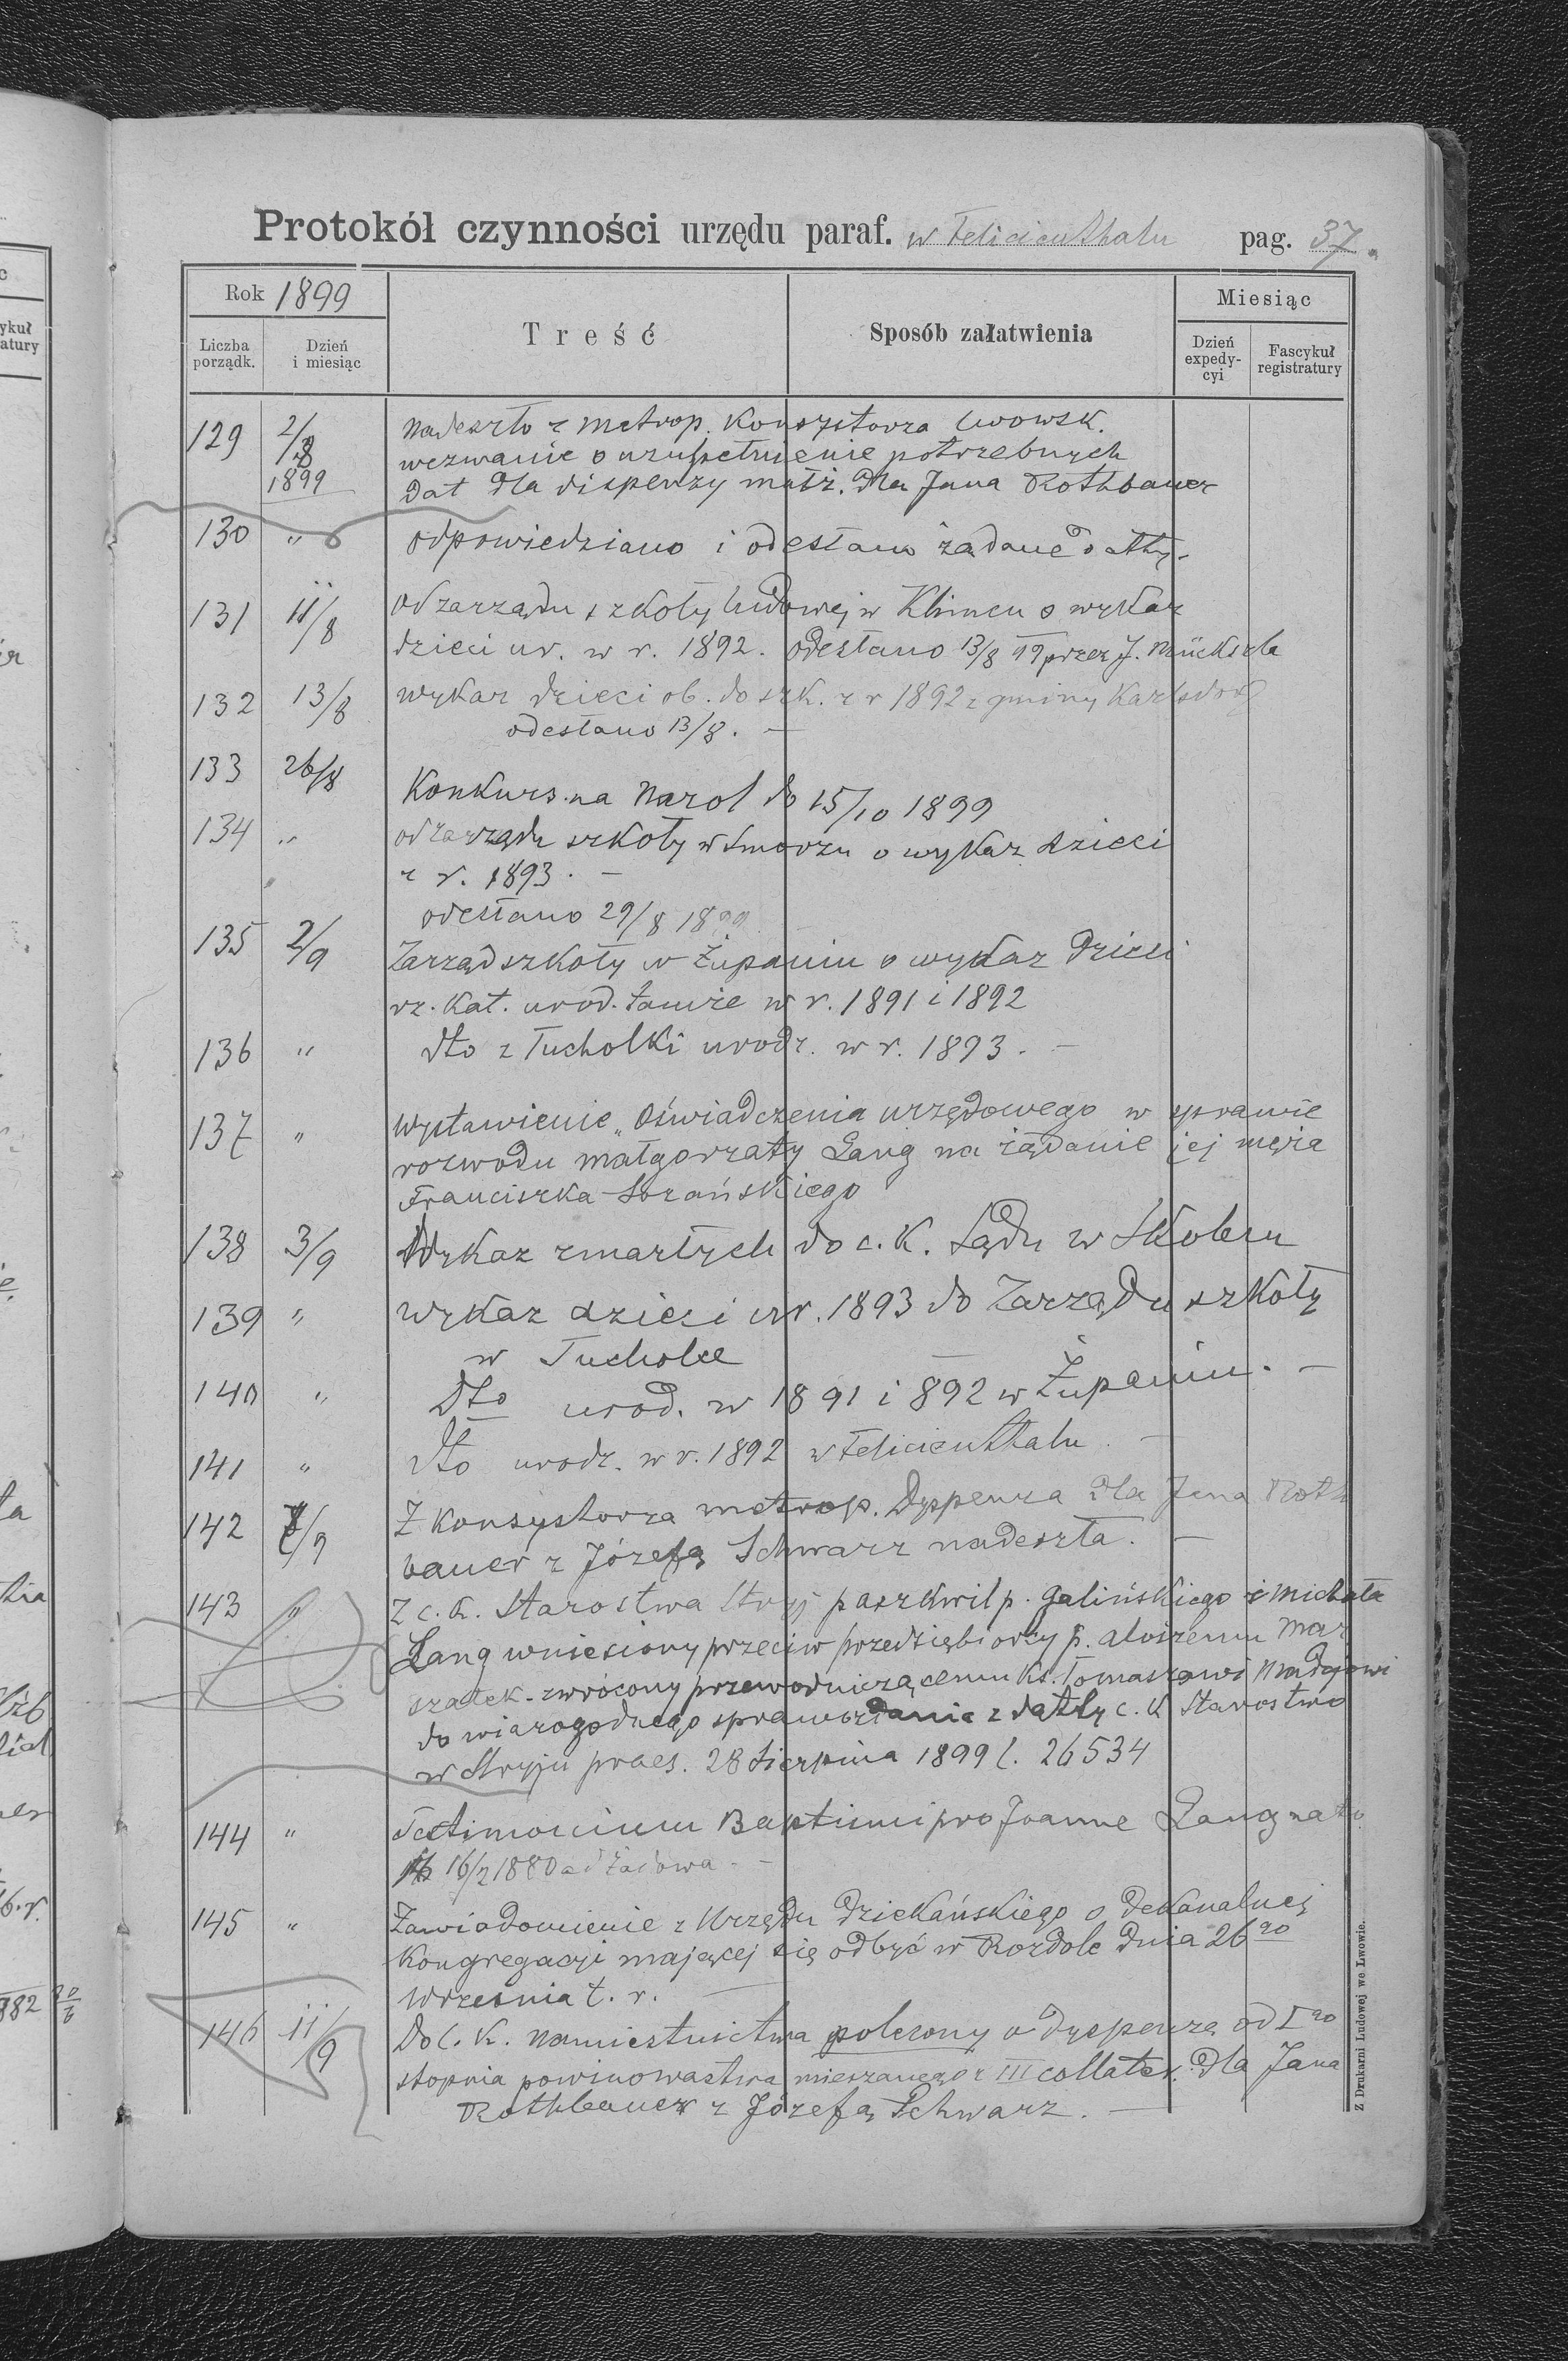 Protokół czynności urzędu paraf. w Felicienthalu pag. 37.
Rok 1899
Liczba porządk.
Dzień i miesiąc
Treść
Sposób załatwienia
Miesiąc
Dzień expedycyi
Fascykuł registratury
129 2/8 1899 Nadeszło z metrop. Konsystorza lwowsk.
wezwanie o uzupełnienie potrzebnych
dat dla dispenzy małż. dla Jana Rothbauer
130 " odpowiedziano i odesłano żądane datty.
131 11/8 od zarządu szkoły ludowej w Klimcu o wykaz
dzieci ur. w r. 1892. odesłano 13/8 99 przez J. Mückszla
132 13/8 wykaz dzieci ob. do szk. z r 1892 z gminy Karlsdorf
odesłano 13/8. —
133 26/8 Konkurs na Narol do 15/10 1899
134 " od zarządu szkoły w Smorzu o wykaz dzieci
z r. 1893. —
odesłano 29/8 1899
135 2/9 Zarząd szkoły w Żupaniu o wykaz dzieci
rz. kat. urod. tamże w r. 1891 i 1892
136 " dto z Tucholki urodz. w r. 1893. —
137 " Wystawienie „Oświadczenia urzędowego w sprawie
rozwodu Małgorzaty Lang na żądanie jej męża
Franciszka Sorańskiego
138 3/9 Wykaz zmarłych do c. k. Sądu w Skolem
139 " Wykaz dzieci ur. 1893 do Zarządu szkoły
w Tucholce
140 " Dto urod. w 1891 i 892 w Żupaniu. —
141 " Dto urodz. w r. 1892 w Felicienthalu. —
142 7/9 Z Konsystorza metrop. Dyspenza dla Jana Roth
bauer z Józefą Schwarz nadeszła. —
143 " Z c. k. Starostwa Stryj paszkwil p. Galińskiego i Michała
Lang wniesiony przeciw przedsiębiorcy p. Alojzemu Mar
szałek - zwrócony przewodniczącemu ks. Tomaszowi Madejowi
do wiarogodnego sprawozdania z datty c. k Starostwo
w Stryju praes. 28 Sierpnia 1899 l. 26534
144 " Testimonium Baptismi pro Joanne Lang nato
16/2 1880 ad Zadowa. —
145 " Zawiadomienie z Urzędu dziekańskiego o dekanalnej
Kongregacji mającej się odbyć w Rozdole dnia 26go
Września t. r. —
146 11/9 Do C. K. Namiestnictwa polecony o dyspenzę od Igo
stopnia powinowactwa mieszanego z III collater. dla Jana
Rothbauer z Józefą Schwarz. —
Z Drukarni Ludowej we Lwowie.